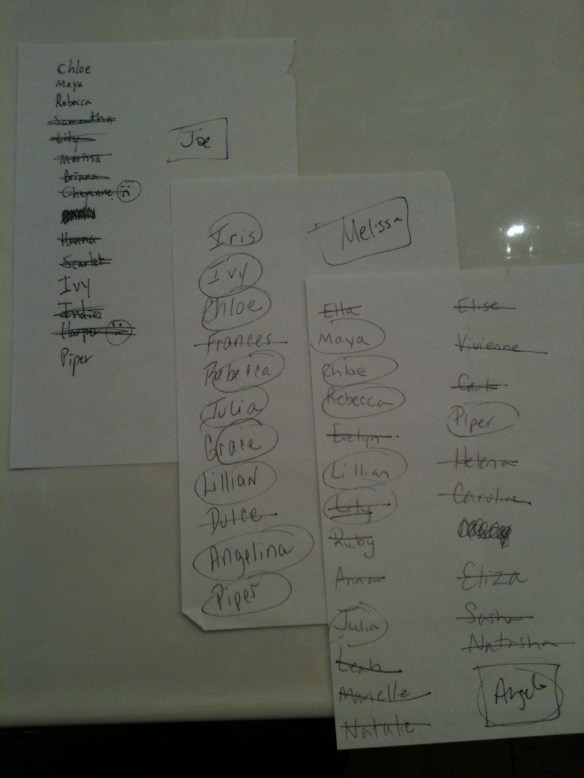 Chloe
Maya
Rebecca
Samantha
Lily
Marissa
Briana
Cheyenne
Hanna
Scarlet
Ivy
Indies
Harper
Piper
Joe
Iris
Ivy
Chloe
Frances
Rebecca
Julia
Grace
Lillian
Dulce
Angelina
Piper
Melissa
Ella
Maya
Rebecca
Evelyn
Lillian
Lily
Ruby
Anna
Julia
Leah
Marielle
Natalie
Elise
Vivienne
Piper
Helena
Caroline
Eliza
Sasha
Natasha
Angela